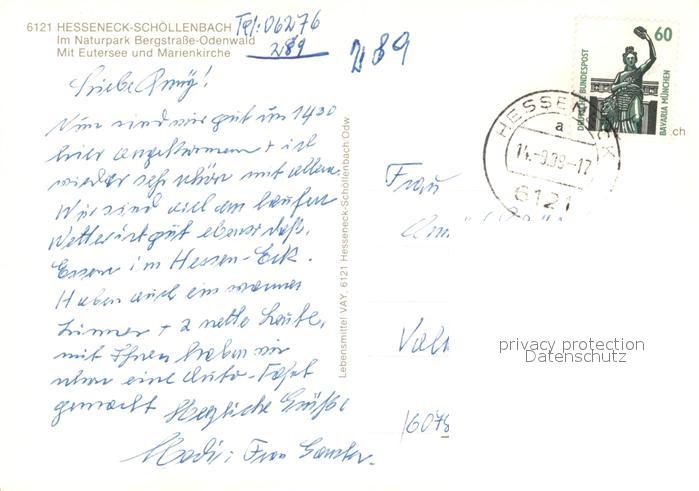 6121 HESSENECK-SCHÖLLENBACH Tel: 06276
Im Naturpark Bergstraße-Odenwald 289
Mit Eutersee und Marienkirche
289
Liebe
Nun sind wir gut um 1430
hier angekommen + ist
wieder sehr schön mit allem.
Wir sind viel am laufen
Wetter ist gut ebenso das
Essen im Hessen-Eck.
Haben auch ein warmes
Zimmer + 2 nette Leute,
mit Ihnen haben wir
eine Auto-Fahrt
gemacht Herzliche Grüße
Frau
Lebensmittel VAY, 6121 Hesseneck-Schöllenbach/Odw
60
DEUTSCHE BUNDESPOST
BAVARIA MÜNCHEN
HESSENECK
a
6121
.ch
Frau
privacy protection
Datenschutz